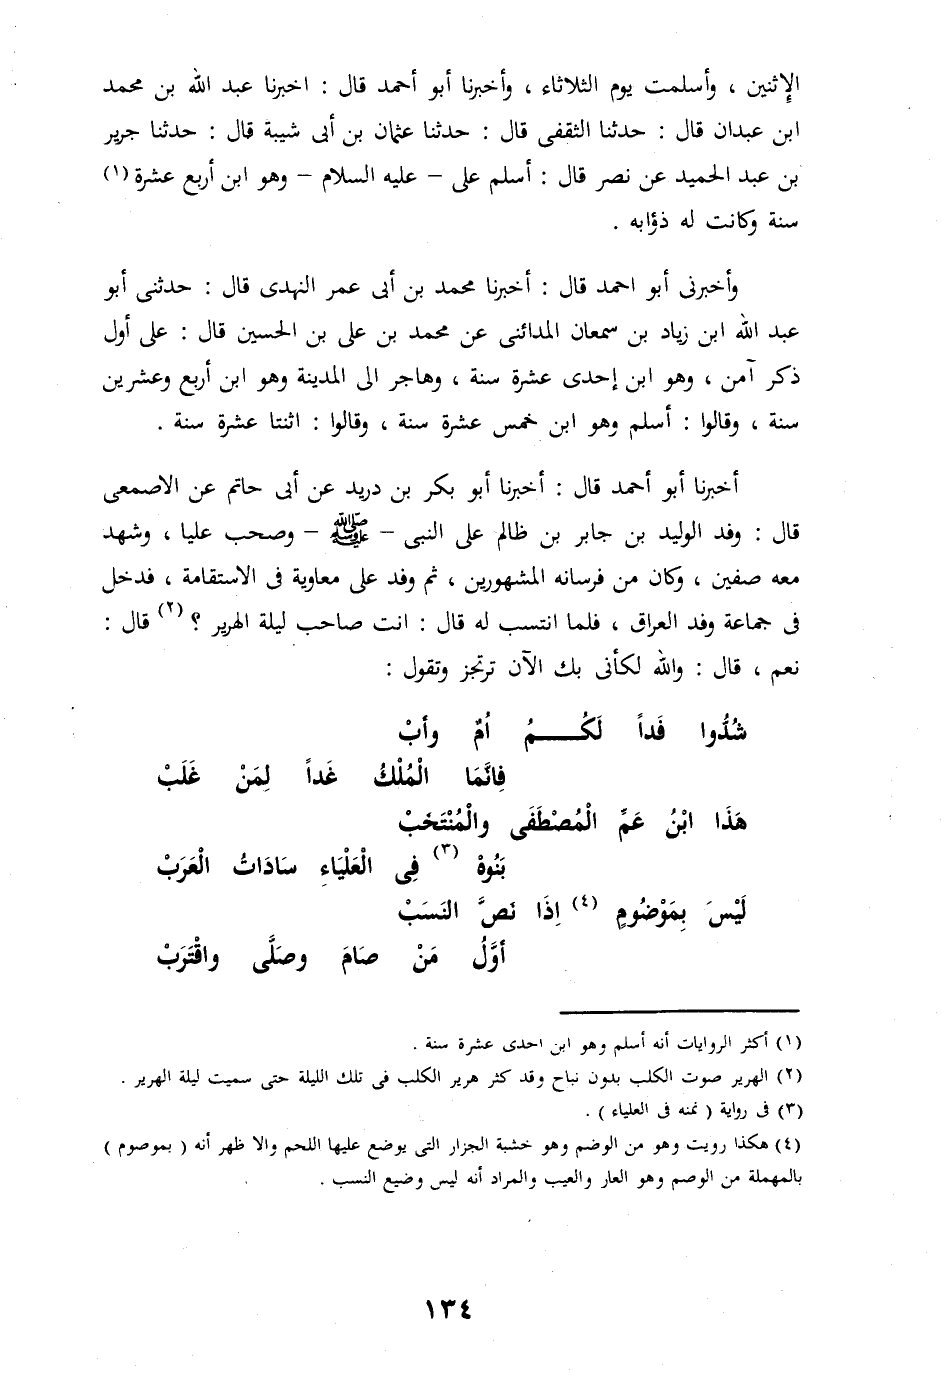 الإثنين ، وأسلمت يوم الثلاثاء ، وأخبرنا أبو أحمد قال : اخبرنا عبد الله بن محمد
ابن عبدان قال : حدثنا الثقفى قال : حدثنا عثمان بن أبى شيبة قال : حدثنا جرير
بن عبد الحميد عن نصر قال : أسلم على – عليه السلام – وهو ابن أربع عشرة (١)
سنة وكانت له ذؤابه .
وأخبرنى أبو احمد قال : أخبرنا محمد بن أبى عمر النهدى قال : حدثنى أبو
عبد الله ابن زياد بن سمعان المدائنى عن محمد بن على بن الحسين قال : على أول
ذكر آمن ، وهو ابن إحدى عشرة سنة ، وهاجر الى المدينة وهو ابن أربع وعشرين
سنة ، وقالوا : أسلم وهو ابن خمس عشرة سنة ، وقالوا : اثنتا عشرة سنة .
أخبرنا أبو أحمد قال : أخبرنا أبو بكر بن دريد عن أبى حاتم عن الاصمعى
قال : وفد الوليد بن جابر بن ظالم على النبى – ﷺ – وصحب عليا ، وشهد
معه صفين ، وكان من فرسانه المشهورين ، ثم وفد على معاوية فى الاستقامة ، فدخل
فى جماعة وفد العراق ، فلما انتسب له قال : انت صاحب ليلة الهرير ؟ (٢) قال :
نعم ، قال : والله لكأنى بك الآن ترتجز وتقول :
شُدُّوا فَداً لَكُــــمُ اُمٌ وأبْ
فِانَّمَا الْمُلْكُ غَداً لِمَنْ غَلَبْ
هَذَا ابْنُ عَمِّ الْمُصْطَفَى والْمُنْتَخَبْ
بَنُوهْ (٣) فِى الْعَلْيَاءِ سَادَاتُ الْعَرَبْ
لَيْسَ بِمَوْضُومٍ (٤) اِذَا نَصَّ النَسَبْ
أوَّلُ مَنْ صَامَ وصَلَّى واقْتَرَبْ
(١) أكثر الروايات أنه أسلم وهو ابن احدى عشرة سنة .
(٢) الهرير صوت الكلب بدون نباح وقد كثر هرير الكلب فى تلك الليلة حتى سميت ليلة الهرير .
(٣) فى رواية ( نمنه فى العلياء ) .
(٤) هكذا رويت وهو من الوضم وهو خشبة الجزار التى يوضع عليها اللحم والا ظهر أنه ( بموصوم )
بالمهملة من الوصم وهو العار والعيب والمراد أنه ليس وضيع النسب .
١٣٤